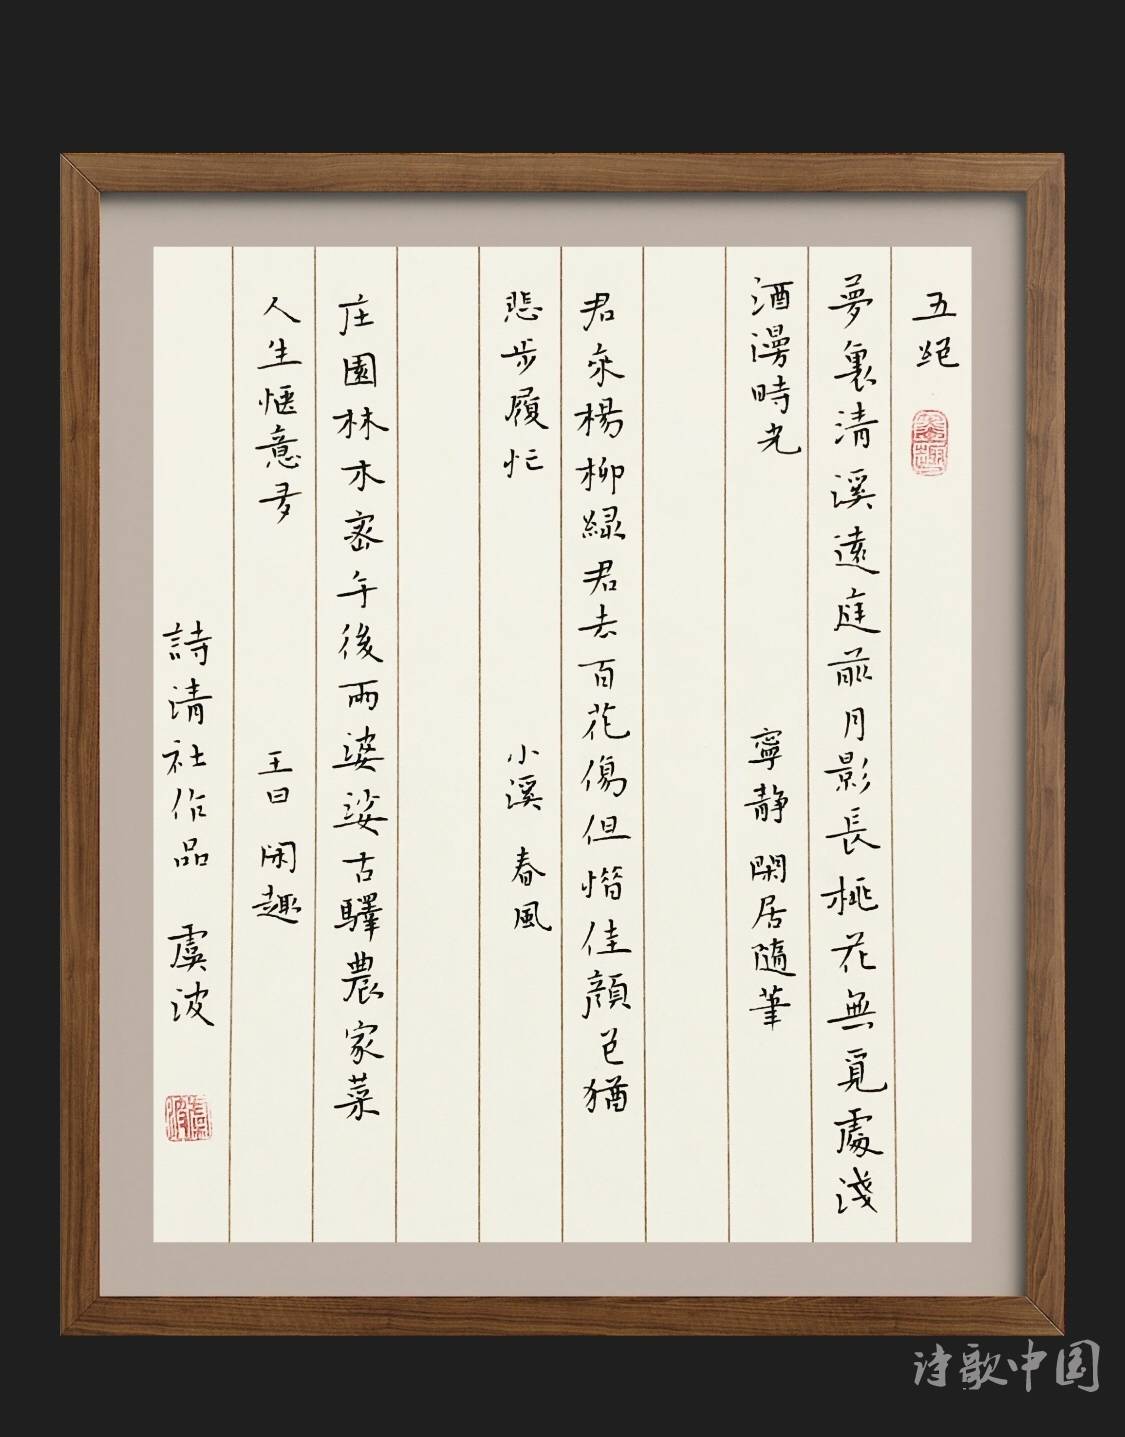 五絕
夢裏清溪遠庭前月影長桃花無覓處淺
酒漫時光
寧靜 閑居隨筆
君來楊柳綠君去百花傷但惜佳顏色猶
悲步履忙
小溪 春風
庄園林木密午後雨婆娑古驛農家菜
人生愜意多
王曰 閑趣
詩清社作品 虞波
诗歌中国